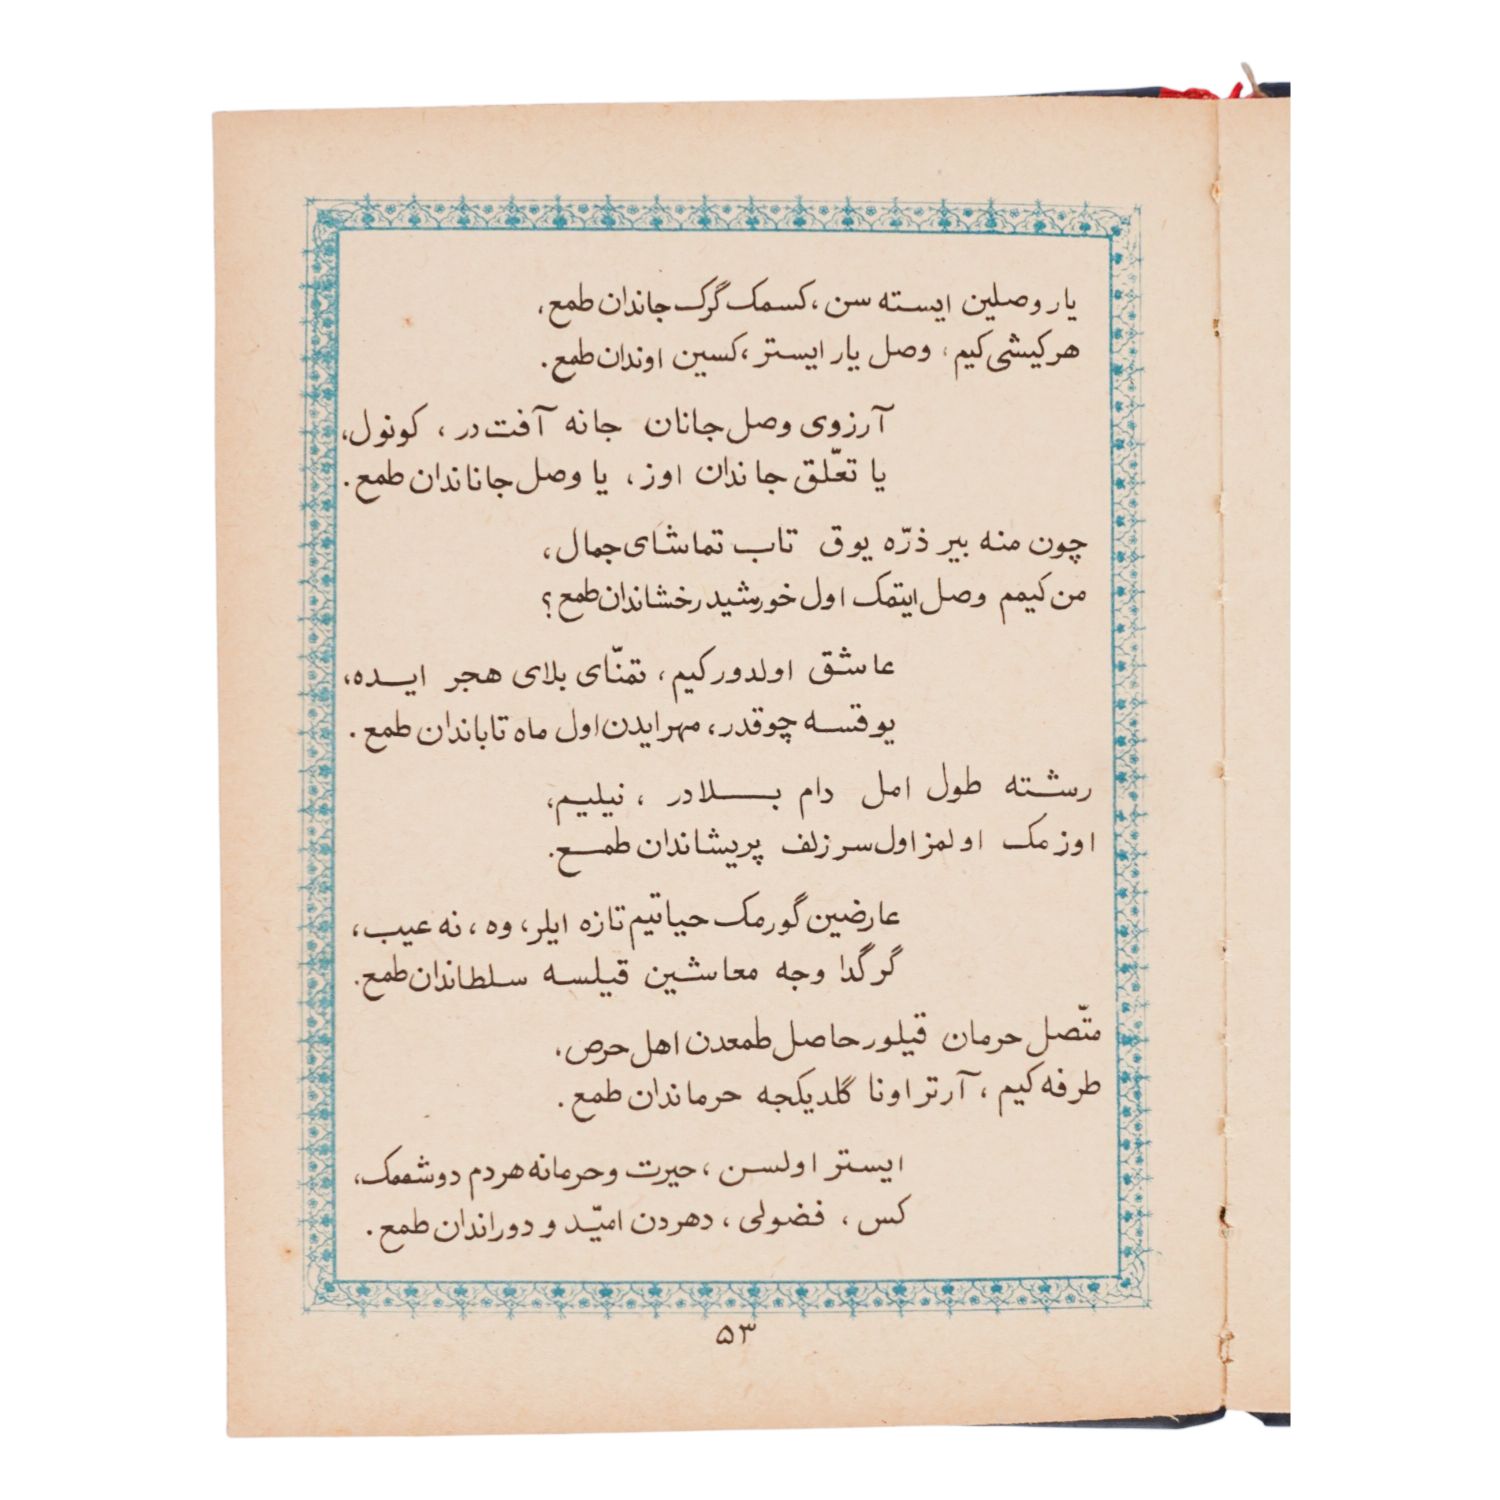 یار وصلین ایسته سن ، کسمک گرک جاندان طمع،
هر کیشی کیم، وصل یار ایستر ، کسین اوندان طمع.
آرزوی وصل جانان جانه آفت در ، کونول،
یا تعلّق جاندان اوز ، یا وصل جاناندان طمع.
چون منه بیر ذرّه یوق تاب تماشای جمال،
من کیمم وصل ایتمک اول خورشید رخشاندان طمع؟
عاشق اولدور کیم، تمنّای بلای هجر ایده،
یوقسه چوقدر، مهر ایدن اول ماه تاباندان طمع.
رشته طول امل دام بلادر ، نیلیم،
اوزمک اولمز اول سر زلف پریشاندان طمع.
عارضین گورمک حیاتیم تازه ایلر، وه ، نه عیب،
گر گدا وجه معاشین قیلسه سلطاندان طمع.
متّصل حرمان قیلور حاصل طمعدن اهل حرص،
طرفه کیم ، آرتر اونا گلدیکجه حرماندان طمع.
ایستر اولسن ، حیرت و حرمانه هردم دوشممک،
کس ، فضولی ، دهردن امیّد و دوراندان طمع.
۵۳